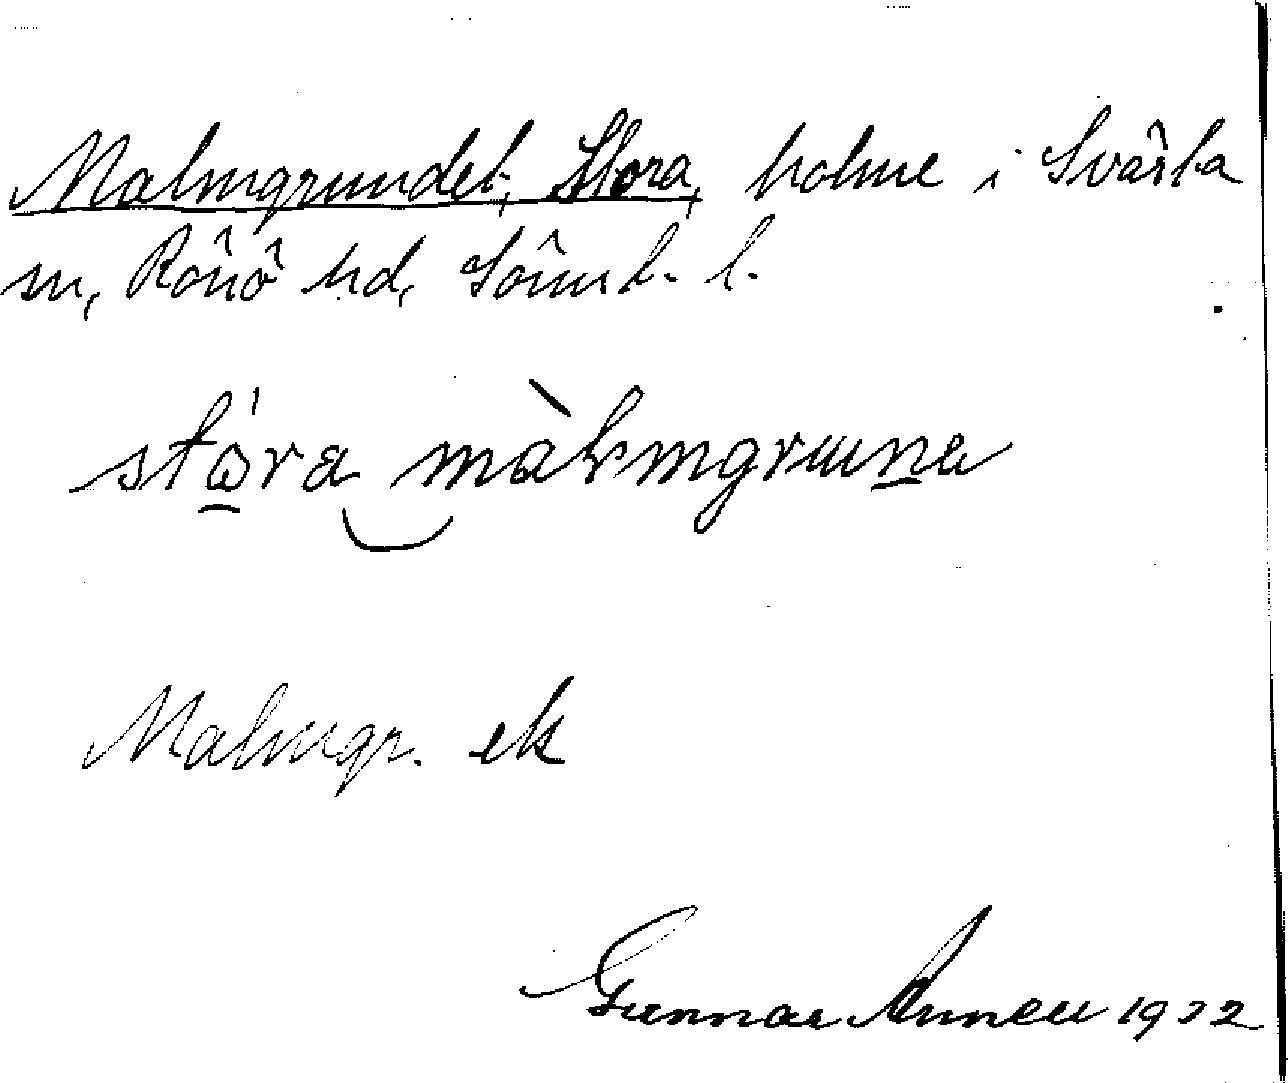 Malmgrundet, Stora, holme i Svärta
sn, Rönö hd, Söderm. l.
stóra màlmgruna
Malmgr. ek
Gunnar Annell 1932